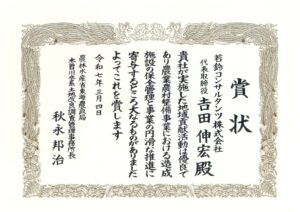 賞状
若鈴コンサルタンツ株式会社
代表取締役 吉田 伸宏 殿
貴社が実施した地域貢献活動は優良で
あり農業農村整備事業における造成
施設の保全管理と事業の円滑な推進に
寄与するところ大なるものがありました
よってこれを賞します
令和七年三月四日
農林水産省東海農政局
木曽川水系土地改良調査管理事務所長
秋永 邦治